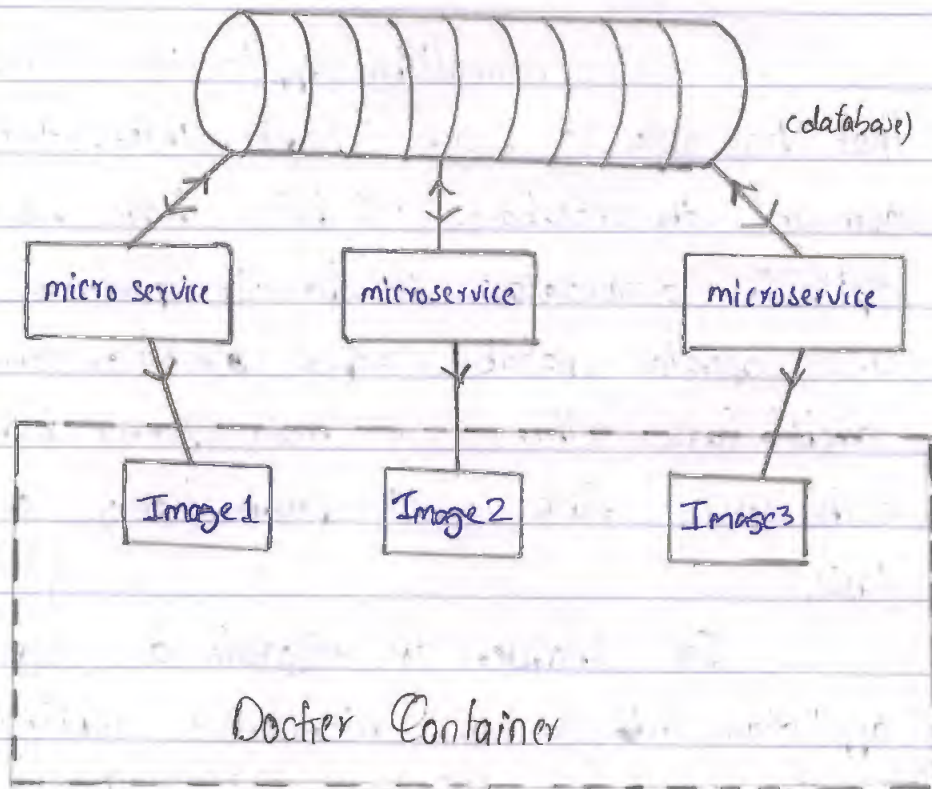 (database)
micro service
microservice
microservice
Image1
Image2
Image3
Docker Container